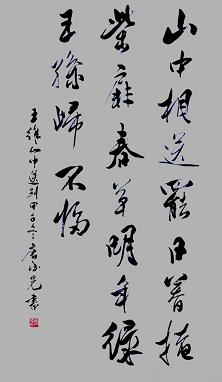 山中相送罷日暮掩
柴扉春草明年綠
王孫歸不歸
王維山中送別甲午書